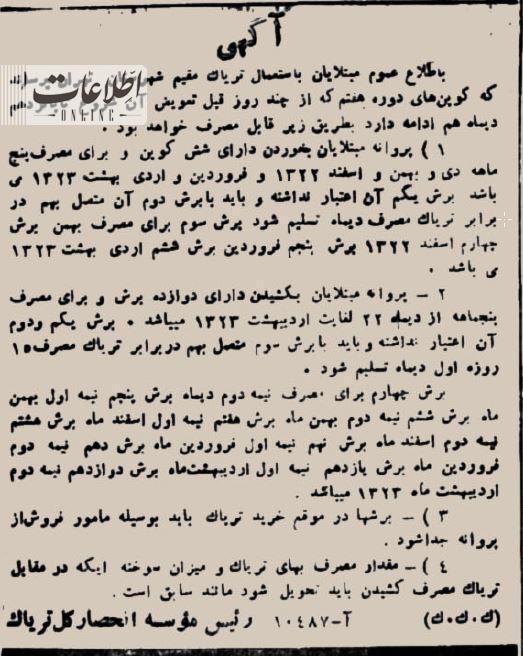 آگهی
باطلاع عموم مبتلایان باستعمال تریاك مقیم
اطلاعات
ONLINE
که کوپن‌های دوره هفتم که از چند روز قبل تعویض آن
دیماه هم ادامه دارد بطریق زیر قابل مصرف خواهد بود .
۱ ) پروانه مبتلایان بخوردن دارای شش کوپن و برای مصرف پنج
ماهه دی و بهمن و اسفند ۱۳۲۲ و فروردین و اردی بهشت ۱۳۲۳ می
باشد برش یکم آن اعتبار نداشته و باید بابرش دوم آن متصل بهم در
برابر تریاك مصرف دیماه تسلیم شود برش سوم برای مصرف بهمن برش
چهارم اسفند ۱۳۲۲ برش پنجم فروردین برش ششم اردی بهشت ۱۳۲۳
می باشد .
۲ – پروانه مبتلایان بکشیدن دارای دوازده برش و برای مصرف
پنجماهه از دیماه ۲۲ لغایت اردیبهشت ۱۳۲۳ میباشد . برش یکم ودوم
آن اعتبار نداشته و باید بابرش سوم متصل بهم دربرابر تریاك مصرف ۱۵
روزه اول دیماه تسلیم شود .
برش چهارم برای مصرف نیمه دوم دیماه برش پنجم نیمه اول بهمن
ماه برش ششم نیمه دوم بهمن ماه برش هفتم نیمه اول اسفند ماه برش هشتم
نیمه دوم اسفند ماه برش نهم نیمه اول فروردین ماه برش دهم نیمه دوم
فروردین ماه برش یازدهم نیمه اول اردیبهشت‌ماه برش دوازدهم نیمه دوم
اردیبهشت ماه ۱۳۲۳ میباشد .
۳ ) – برشها در موقع خرید تریاك باید بوسیله مامور فروش از
پروانه جداشود .
٤ ) – مقدار مصرف بهای تریاك و میزان سوخته ایکه در مقابل
تریاك مصرف کشیدن باید تحویل شود مانند سابق است .
(ك.ك.ك) آ-۱۰٤۸۷ رئیس مؤسسه انحصار کل تریاك